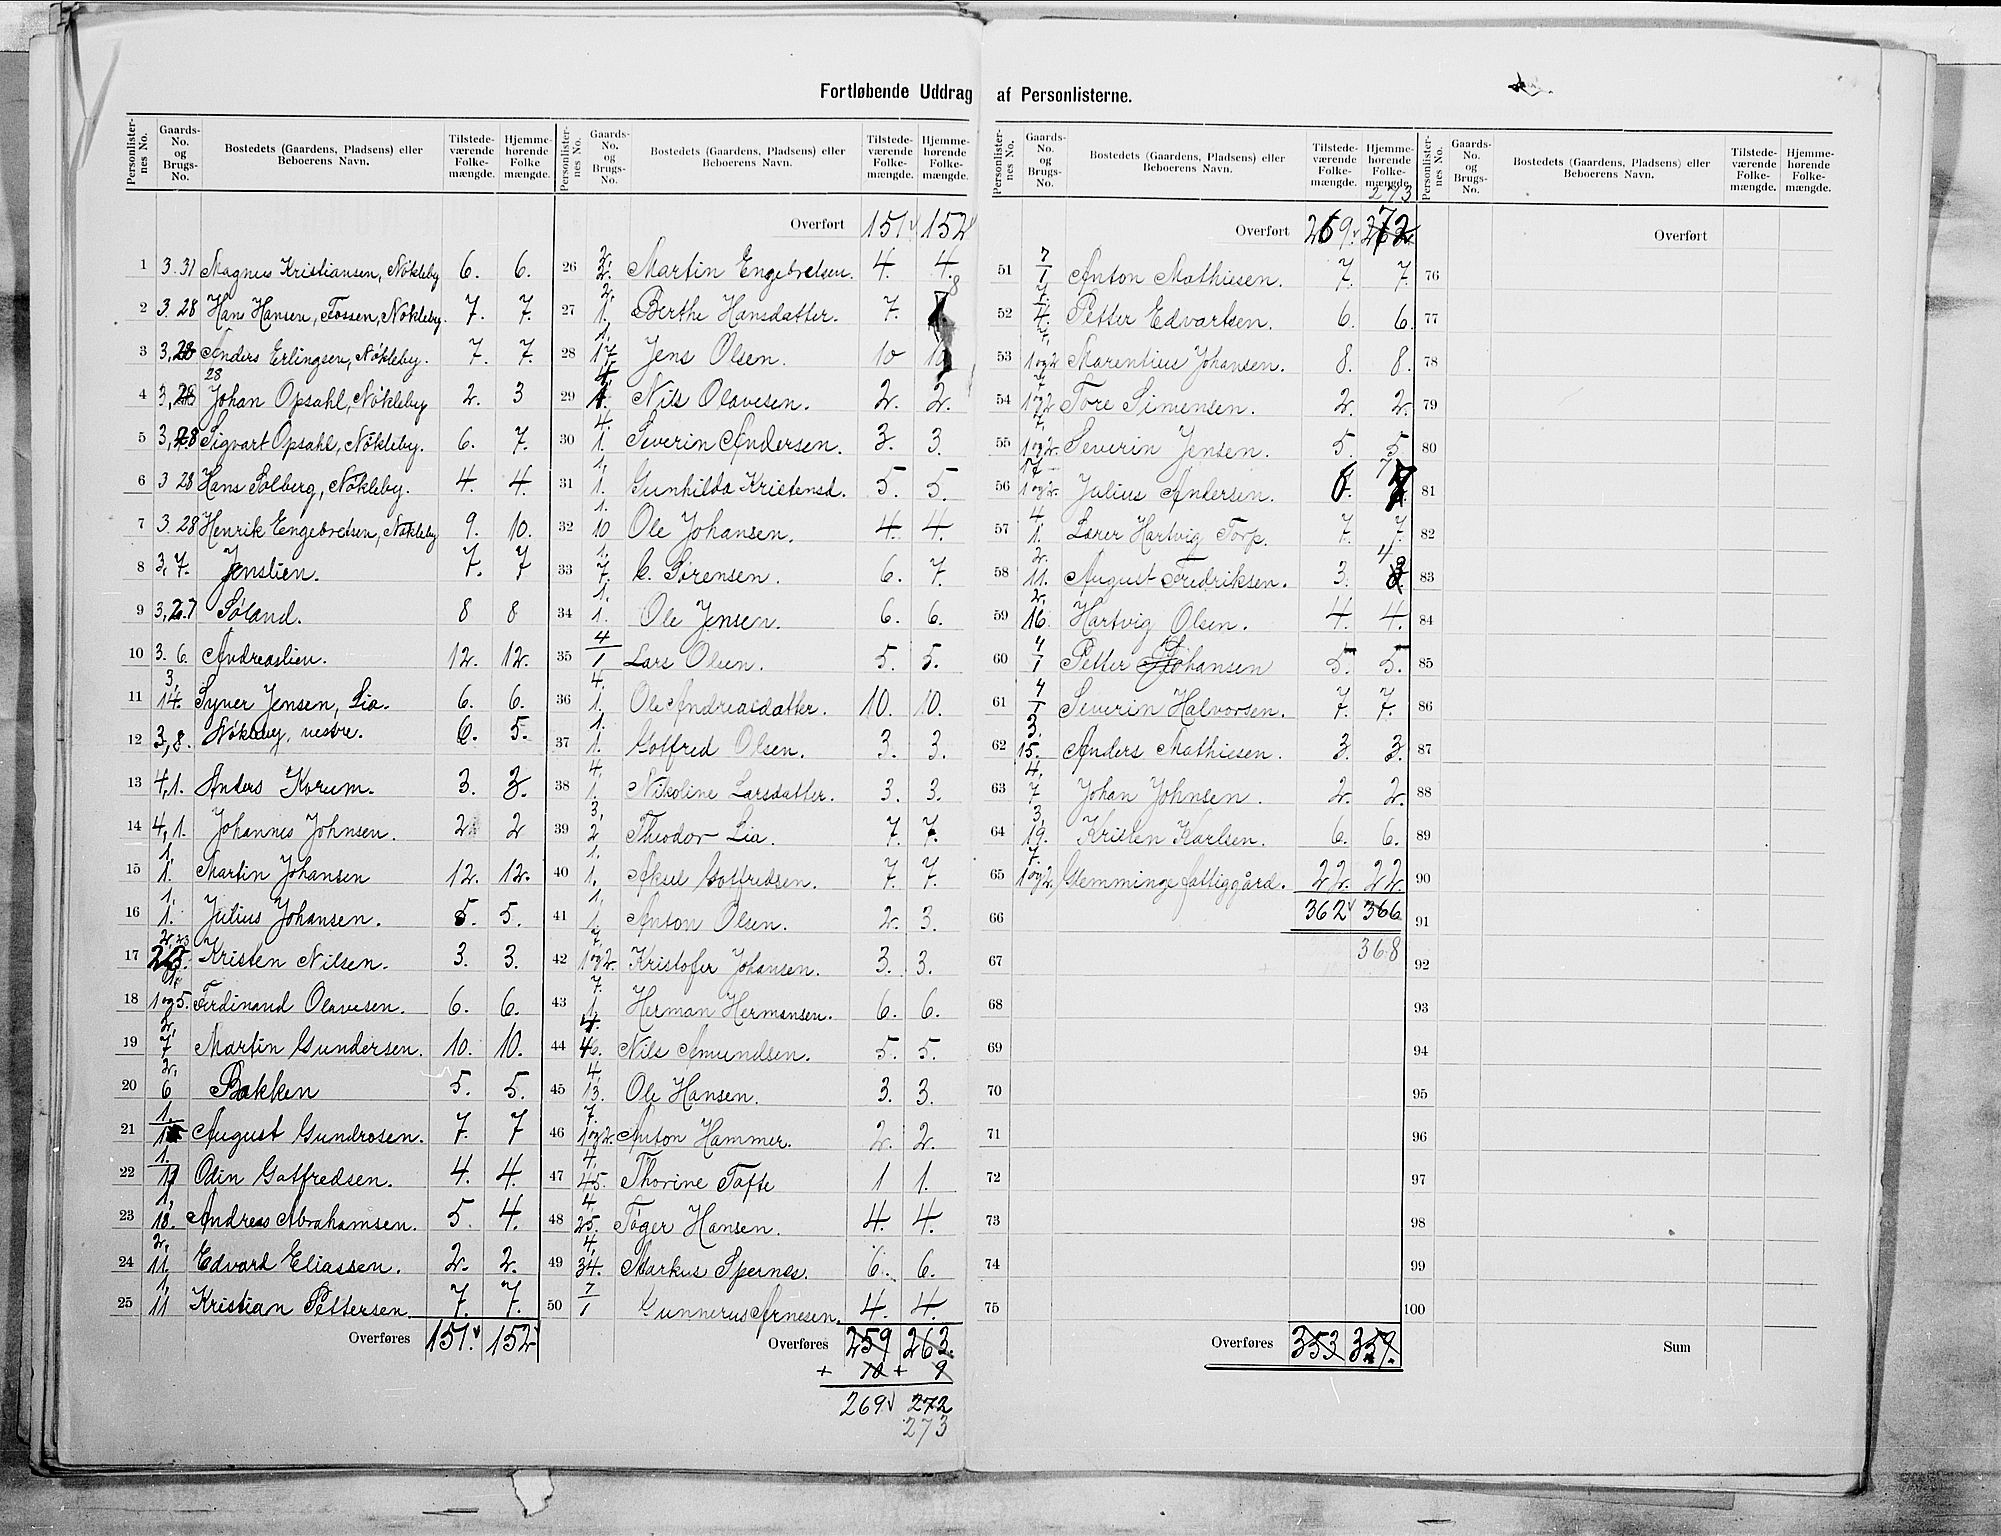 Fortløbende Uddrag af Personlisterne.
Personlister-nes No. | Gaards-No. og Brugs-No. | Bostedets (Gaardens, Pladsens) eller Beboerens Navn. | Tilstede-værende Folke-mængde. | Hjemme-hørende Folke mængde.
1 3.31 Magnus Kristiansen, Nökleby 6. 6.
2 3.28 Hans Hansen, Fossen, Nökleby. 7. 7.
3 3,28 Anders Erlingsen, Nökleby. 7. 7.
4 3,28 Johan Opsahl, Nökleby 2. 3
5 3,28 Sigvart Opsahl, Nökleby. 6. 7.
6 3 28 Hans Solberg, Nökleby. 4. 4.
7 3.28 Henrik Engebretsen, Nökleby 9. 10.
8 3,7. Jenslien. 7. 7
9 3,27 Söland. 8 8
10 3.6. Andreaslien. 12. 12.
11 3,14. Syver Jensen, Lia. 6. 6.
12 3,8. Nökleby, vestre. 6. 5.
13 4,1. Anders Korum. 3. 3.
14 4,1. Johannes Johnsen. 2 2
15 1,1. Martin Johansen 12. 12.
16 1,1. Julius Johansen. 5. 5.
17 2,23 Kristen Nilsen. 3. 3.
18 1og5. Ferdinand Olavesen. 6. 6.
19 2,7 Martin Gundersen. 10. 10.
20 2,6 Bakken 5. 5.
21 1. August Gundrosen. 7. 7
22 1. Odin Gotfredsen. 4. 4.
23 1,18. Andreas Abrahamsen. 5. 4.
24 2,11. Edvard Eliassen. 2. 2.
25 1,11 Kristian Pettersen 7. 7.
Overføres 151. 152
Personlister-nes No. | Gaards-No. og Brugs-No. | Bostedets (Gaardens, Pladsens) eller Beboerens Navn. | Tilstede-værende Folke-mængde. | Hjemme-hørende Folke-mængde.
Overført 151 152
26 2,2. Martin Engebretsen. 4. 4.
27 2,1. Berthe Hansdatter. 7. 8
28 1,17 Jens Olsen. 10 10
29 1. Nils Olavesen. 2. 2.
30 4,1. Severin Andersen. 3. 3.
31 1,1. Gunhilda Kristensd. 5. 5.
32 1,10 Ole Johansen. 4. 4.
33 1,7. C. Sörensen. 6. 7.
34 1,1. Ole Jensen. 6. 6.
35 4/1 Lars Olsen. 5. 5.
36 4,1. Ole Andreasdatter. 10. 10.
37 1,1. Gotfred Olsen. 3. 3.
38 4,1. Nikoline Larsdatter. 3. 3.
39 3,2 Theodor Lia. 7. 7.
40 1,1. Aksel Gotfredsen. 7. 7.
41 1,1. Anton Olsen. 2. 3.
42 7,1og2. Kristofer Johansen. 3. 3.
43 7,1. Herman Hermansen. 6. 6.
44 4,46. Nils Amundsen. 5. 5.
45 4,13. Ole Hansen. 3. 3.
46 7,1og2. Anton Hammer. 2. 2.
47 4,45. Thorine Tofte 1 1.
48 4,25. Töger Hansen. 4. 4.
49 4,34. Markus Spernes. 6. 6.
50 7/1 Gunnerus Arnesen. 4. 4.
Overføres 259 263.
+ 10 + 9
269 272
273
Personlister-nes No. | Gaards-No. og Brugs-No. | Bostedets (Gaardens, Pladsens) eller Beboerens Navn. | Tilstede-værende Folke-mængde. | Hjemme-hørende Folke-mængde.
273
Overført 269. 272
51 7/1 Anton Mathiesen. 7. 7.
52 7,4. Petter Edvartsen. 6. 6.
53 7,1og2 Marentius Johansen. 8. 8.
54 7,1og2 Tore Simensen. 2. 2.
55 7,1og2. Severin Jensen. 5. 5
56 1og2. Julius Andersen. 6. 7
57 4,1. Lærer Hartvig Torp. 7. 7.
58 2,11. August Fredriksen. 3. 4
59 2,16. Hartvig Olsen. 4. 4.
60 7/1 Petter Johansen 5. 5.
61 7/1 Severin Halvorsen. 7. 7.
62 3,15. Anders Mathiesen. 3. 3.
63 4,7 Johan Johnsen. 2. 2.
64 3,19. Kristen Karlsen. 6. 6.
65 7,1og2. Glemminge fattiggård. 22. 22.
66 362 366
67 368
68
69
70
71
72
73
74
75
Overføres 353 359.
Personlister-nes No. | Gaards-No. og Brugs-No. | Bostedets (Gaardens, Pladsens) eller Beboerens Navn. | Tilstede-værende Folke-mængde. | Hjemme-hørende Folke-mængde.
Overført
76
77
78
79
80
81
82
83
84
85
86
87
88
89
90
91
92
93
94
95
96
97
98
99
100
Sum